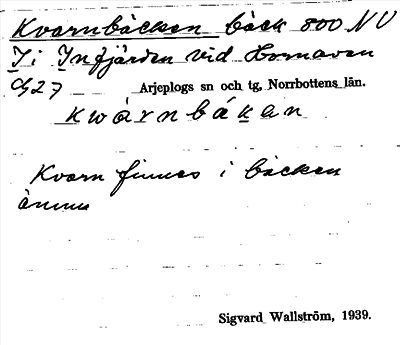 Kvarnbäcken bäck 800 NV
I i Injfjärden vid Hornavan
G27 Arjeplogs sn och tg, Norrbottens län.
kwȧrnbákan
Kvarn finnes i bäcken
ännu
Sigvard Wallström, 1939.